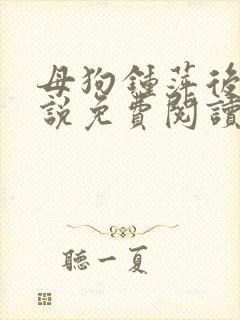 母狗鍾萍後
說免費閱讀
聽一夏